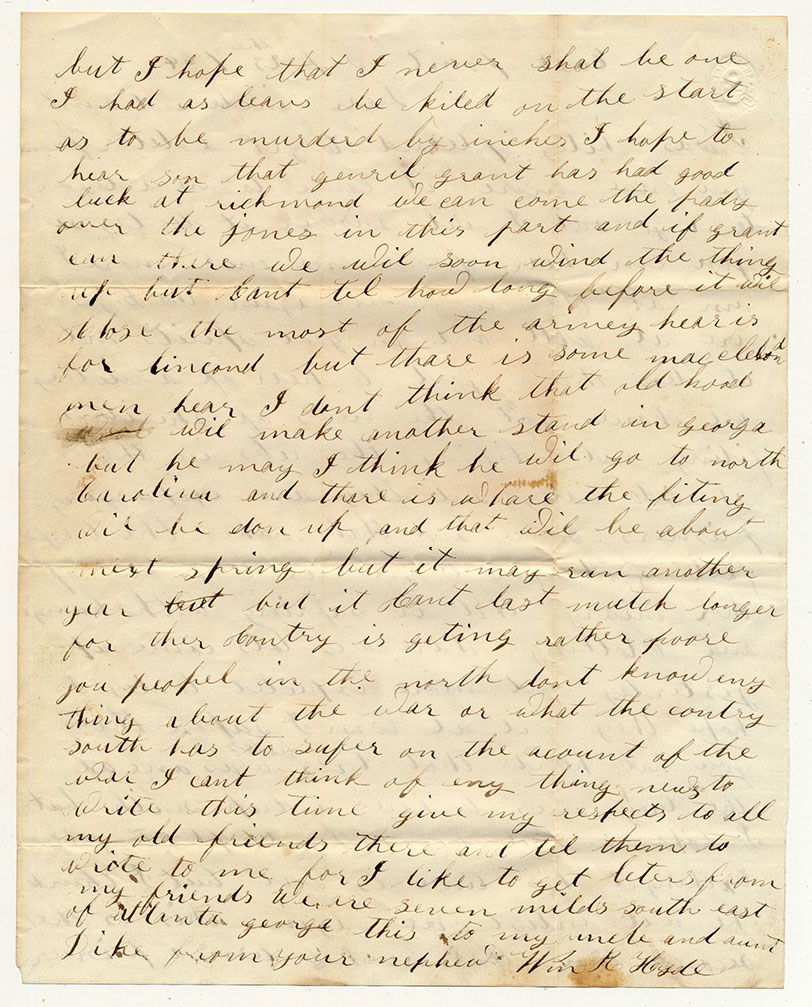 but I hope that I never shal be one
I had as leavs be kiled on the start
as to be murderd by inches I hope to
hear sun that genril grant has had good
luck at richmond we can come the pady
over the jones in this part and if grant
can there we wil soon wind the thing
up but cant tel how long before it wil
close the most of the armey hear is
for lincond but thare is some macleland
men hear I dont think that old hood
wil make another stand in georga
but he may I think he wil go to north
Carolina and thare is whare the fiting
wil be don up and that wil be about
next spring but it may run another
year but but it cant last mutch longer
for ther contry is geting rather poore
you peopel in the north dont know eny
thing about the war or what the contry
south has to super on the acount of the
war I cant think of eny thing new to
write this time give my respects to all
my old friends there and tel them to
wrote to me for I like to get leters from
my friends we are seven milds south east
of atlinta georga this to my uncle and aunt
Dike from your nephew Wm R Hyde